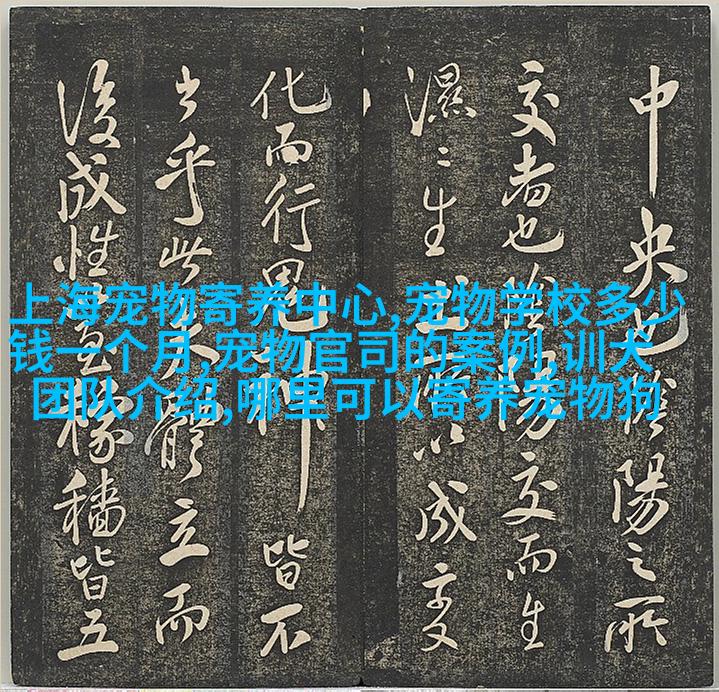 上海宠物寄养中心,宠物学校多少
钱一个月,宠物官司的案例,训犬
团队介绍,哪里可以寄养宠物狗
中央也陰陽之所
交者也陰陽交而生
濕〻生以成變
化而行鬼神皆不
乎此體立而
後成性稼穡皆五